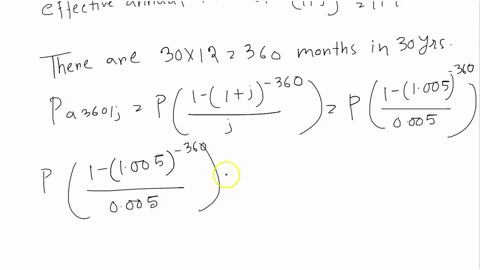 effective annual
There are 30x12=360 months in 30 yrs.
Pa360|j = P((1-(1+j)^-360)/j) = P((1-(1.005)^-360)/0.005)
P((1-(1.005)^-360)/0.005)